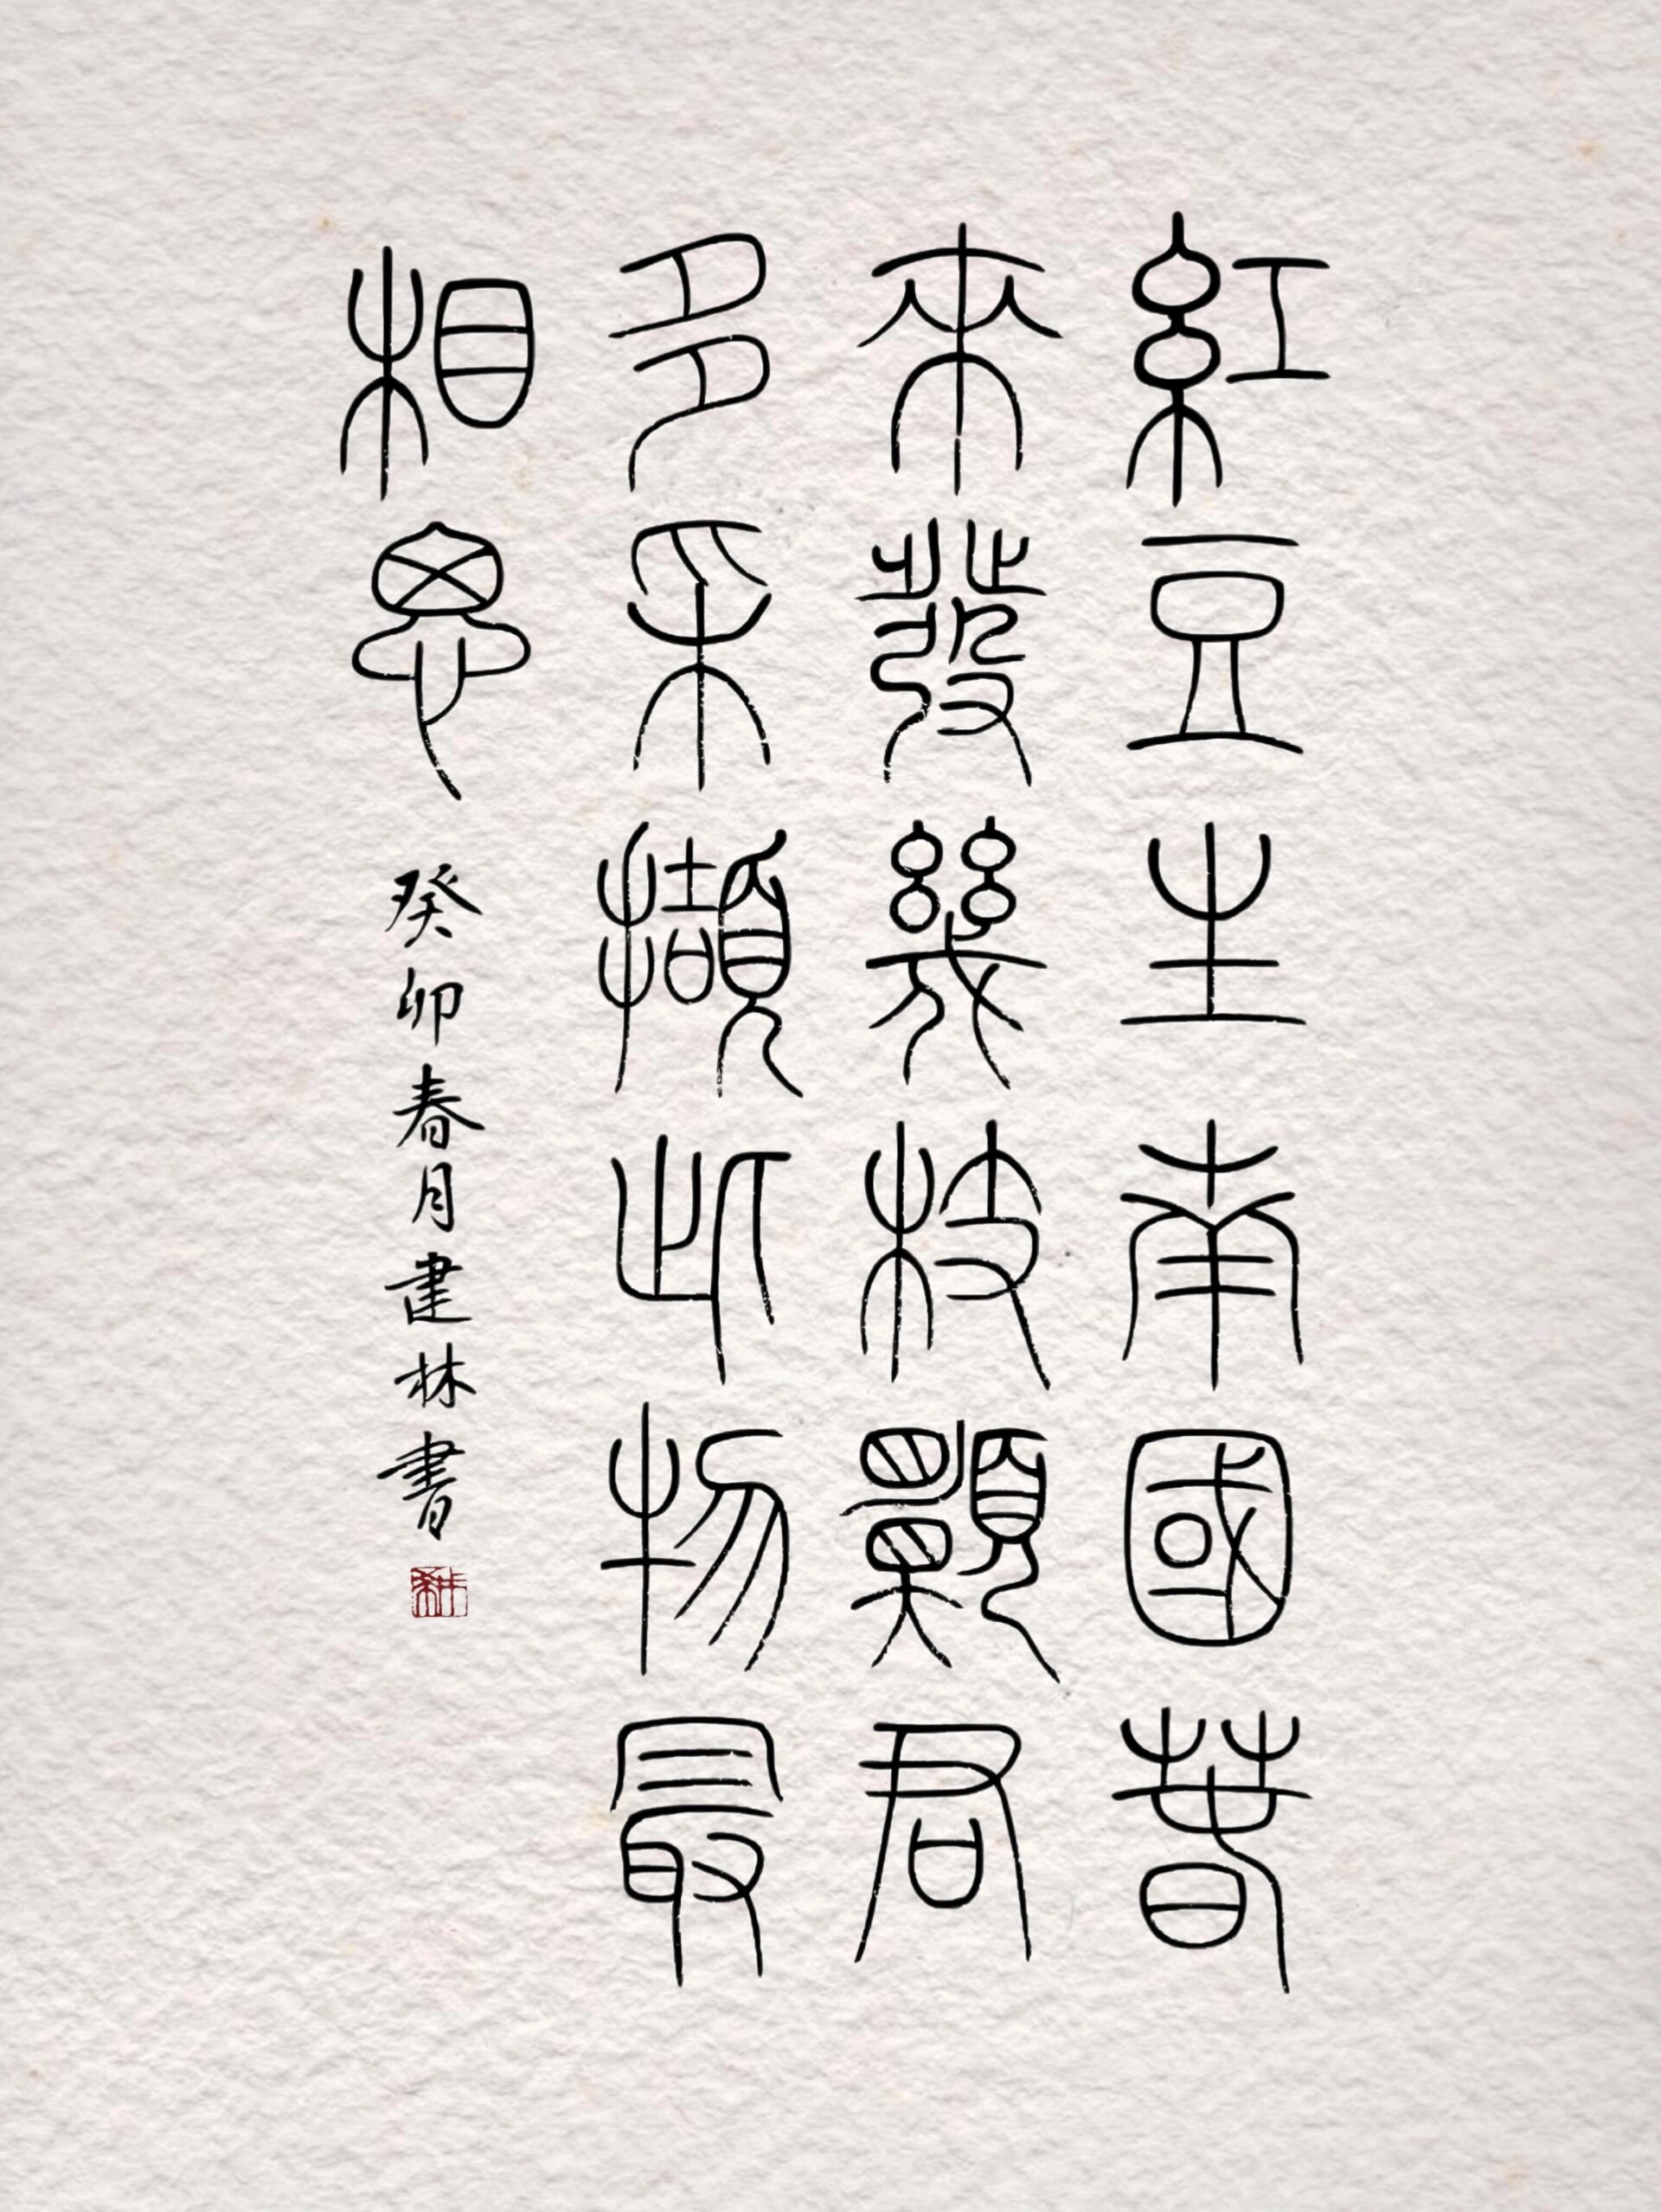 紅豆生南國春
來發幾枝願君
多采擷此物最
相思
癸卯春月建林書